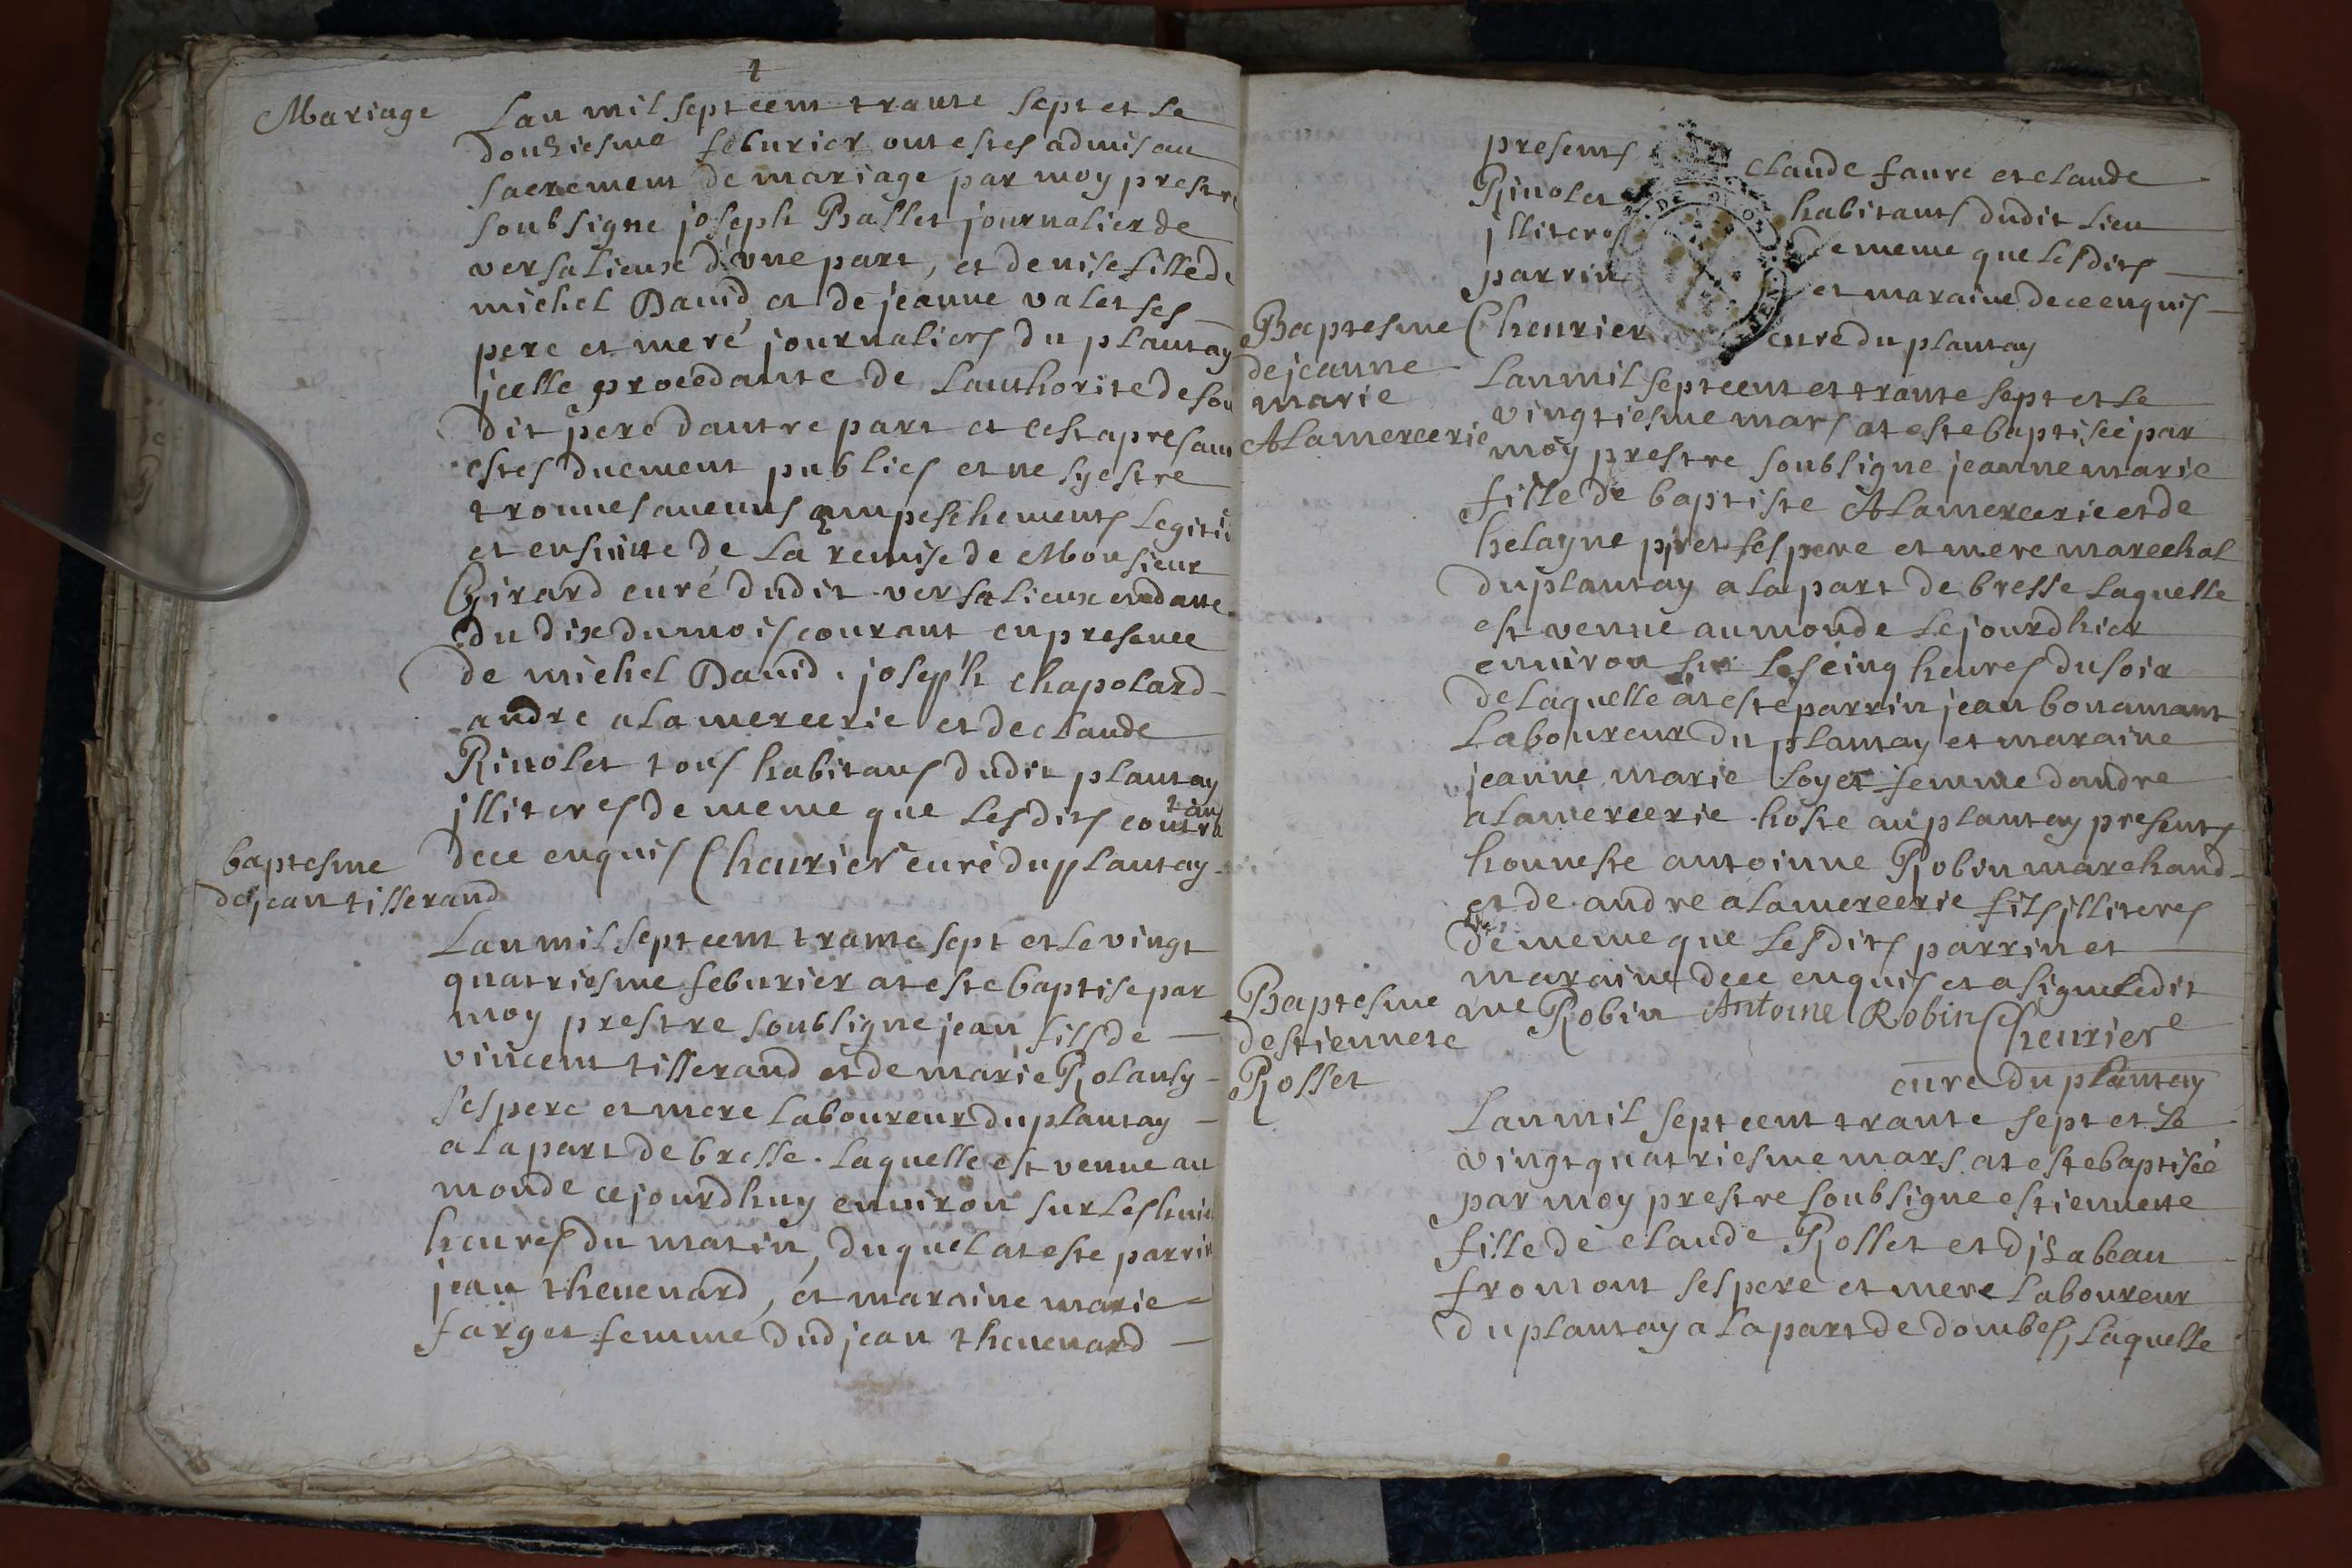 t
Mariage
Lan mil sept cent trante sept et le
douziesme feburier ont estes admis au
sacrement de mariage par moy prestre
soubsigne joseph Ballet journalier de
versalieux d'vne part, et denise fille de
michel Dauid et de jeanne valet ses
pere et mere journaliers du plantay
jcelle procedante de lauthorite de son
dit pere dautre part et cest apres auoir
estes duement publies et ne sy estre
trouues aucuns ampeschements legiti
et ensuitte de la remise de Monsieur
Girard curé dudit versalieux en datte
du dix du mois courant en presence
de michel Dauid, joseph chapolard
andre alamercerie et de claude
Rivolet tous habitans dudit plantay
jlliteres de meme que lesdits contra
tans
de ce enquis Cheurier curé du plantay
baptesme
de jean tisserand
Lan mil sept cent trante sept et le vingt
quatriesme feburier at este baptise par
moy prestre soubsigne jean fils de
vincent tisserand et de marie Rolansy
ses pere et mere laboureur du plantay
a la part de bresse. laquelle est venue au
monde cejourdhuy enuiron sur les huit
heures du matin, duquel at este parrin
jean theuenard, et maraine marie
farget femme dud jean theuenard
presents claude faure et claude
Rivolet habitants dudit lieu
jlliteres de meme que lesdits
parrin et maraine de ce enquis
Cheurier curé du plantay
Baptesme
de jeanne
marie
Alamercerie
Lan mil sept cent et trante sept et le
vingtiesme mars at este baptisée par
moy prestre soubsigne jeanne marie
fille de baptiste Alamercerie et de
helayne ses pere et mere marechal
du plantay a la part de bresse laquelle
est venue au monde le jourdhier
enuiron sur les cinq heures du soir
de laquelle at este parrin jean bonamant
laboureur du plantay et maraine
jeanne marie loyet femme dandre
alamercerie hoste au plantay presents
honneste antoinne Robin marchand
et de andre alamercerie fils jlliteres
de meme que lesdits parrin et
maraine de ce enquis et a signe ledit
me Robin Antoine Robin Cheurier
curé du plantay
Baptesme
destiennete
Rollet
Lan mil sept cent trante sept et le
vingt quatriesme mars at este baptisée
par moy prestre soubsigne estiennette
fille de claude Rollet et djsabeau
fromont ses pere et mere laboureur
du plantay a la part de dombes, laquelle